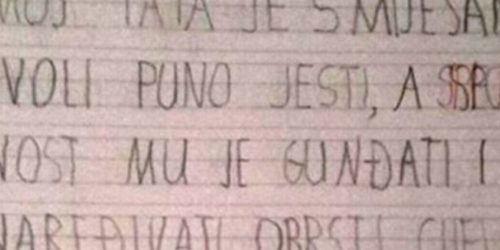 MOJ TATA JE SMIJEŠAN
VOLI PUNO JESTI, A
NOST MU JE GUNĐATI I
NAREĐIVATI